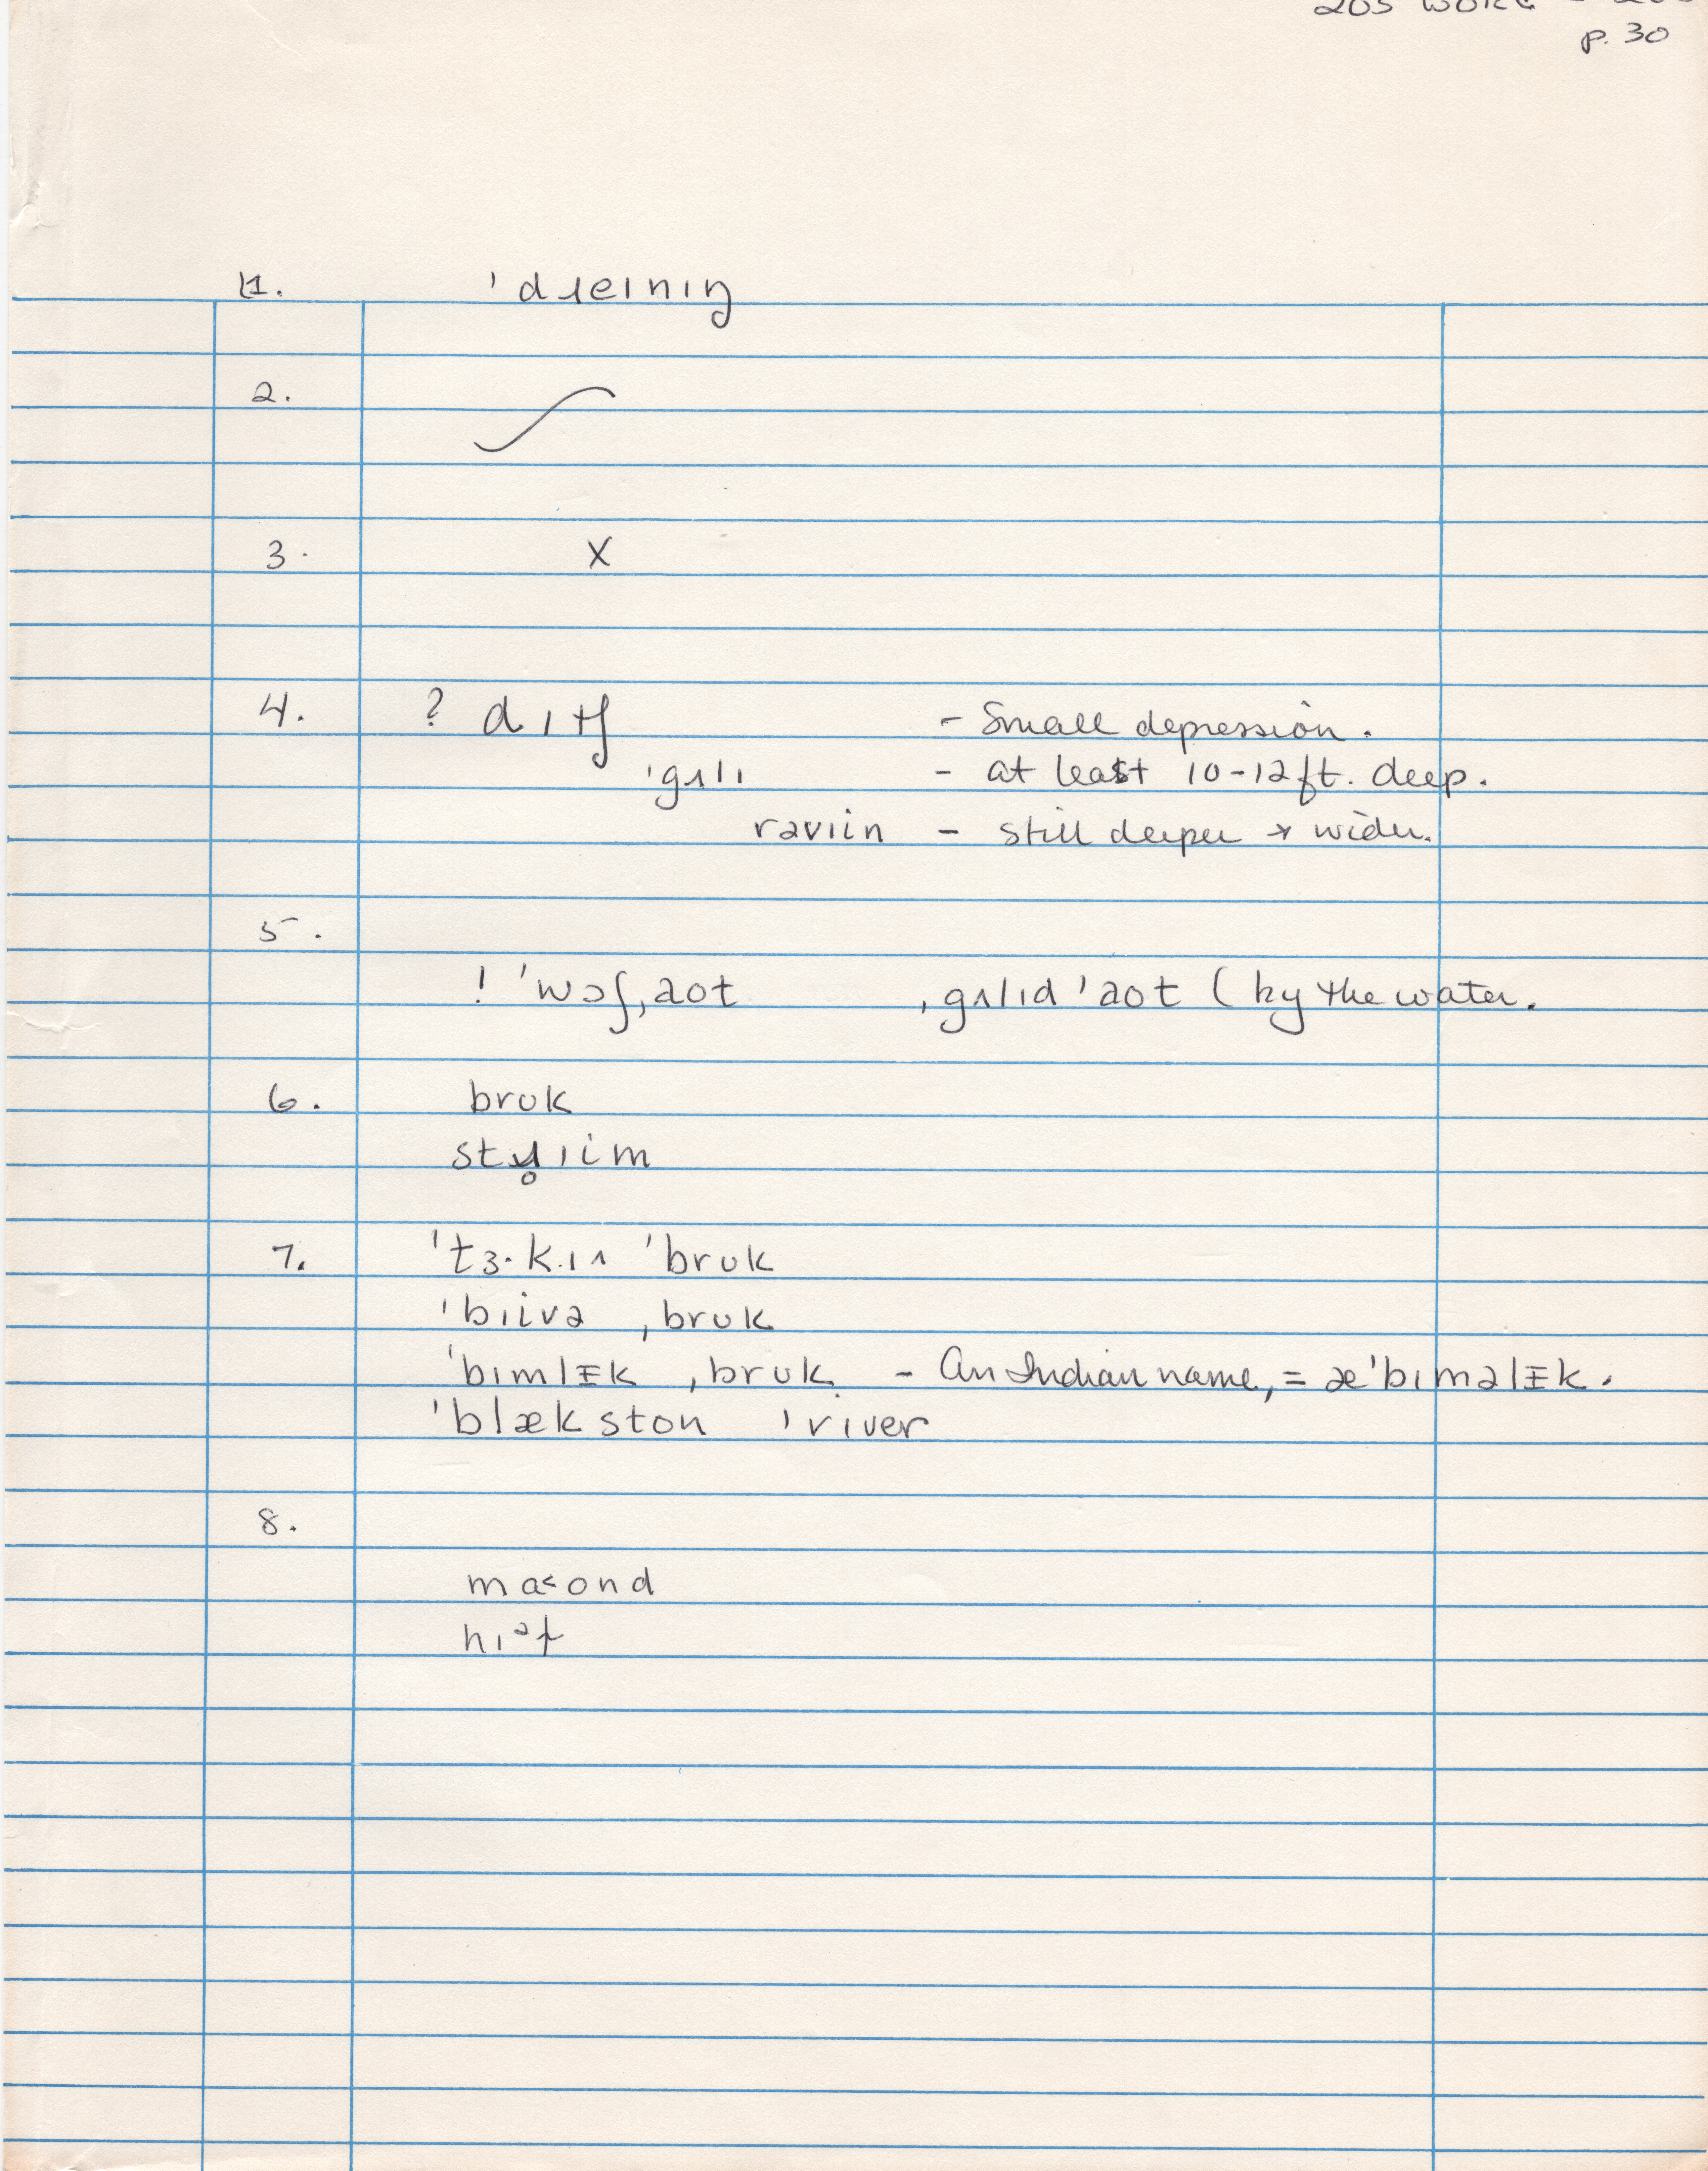 p. 30
1. ˈdɹeɪnɪŋ
2.
3. X
4. ? dɪtʃ - Small depression.
ˈgʌlɪ - at least 10-12 ft. deep.
rəvɪin - still deeper & wider.
5.
! ˈwɔʃˌaʊt ˌgʌlɪdˈaʊt (by the water.
6. brʊk
stɹ̥ɪim
7. ˈtɜ·kɪʌ ˈbrʊk
ˈbɪivə ˌbrʊk
ˈbɪmlɪk ˌbrʊk - An Indian name, = æˈbɪməlɪk.
ˈblækston ˈriver
8.
ma<ʊnd
hɪəɫ